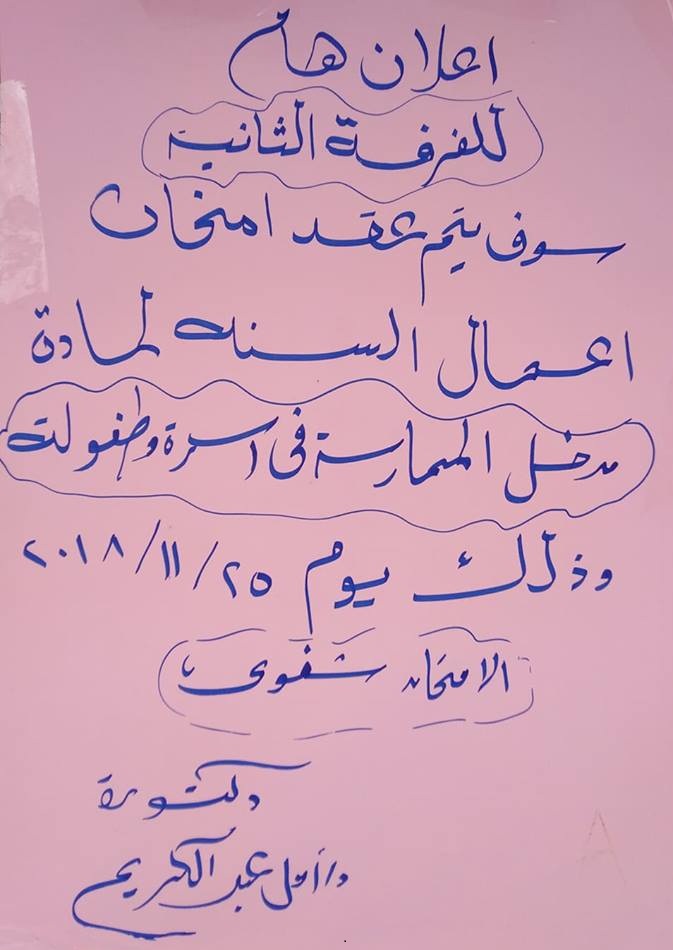 اعلان هام
للفرقة الثانية
سوف يتم عقد امتحان
اعمال السنه لمادة
مدخل الممارسة فى اسرة وطفولة
وذلك يوم ٢٠١٨/١١/٢٥
الامتحان شفوى
دكتورة
د/ أمل عبد الكريم